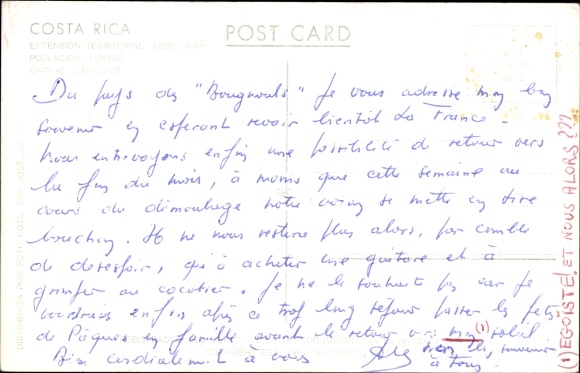 COSTA RICA
POST CARD
EXTENSION TERRITORIAL
POBLACION
CAPITAL SAN JOSE
Du pays des "Bougnouls" je vous adresse mon bon
souvenir en esperant revoir bientôt La France -
Nous entrevoyons enfin une possibilité de retour vers
la fin du mois, à moins que cette semaine au
cours du démoulage notre noyau se mette en tire
bouchon. Il ne nous restera plus alors, par comble
de desespoir, qu'à acheter une guitare et à
grimper au cocotier. Je ne le souhaite pas car je
voudrais enfin après ce trop long séjour passer les fetes
de Pâques en famille avant le retour vers mon (1) soleil
Bien cordialement à vous
souvenir
à tous
(1) EGOISTE! ET NOUS ALORS ???